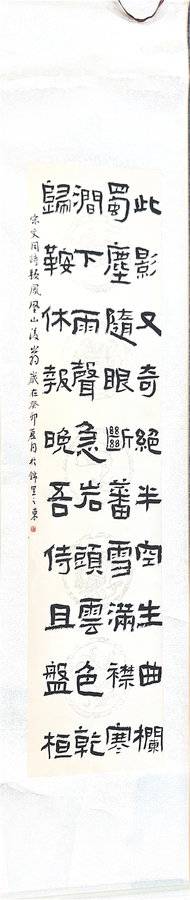 此影又奇絕半空生曲欄
蜀塵隨眼斷蕃雪滿襟寒
澗下雨聲急岩頭雲色乾
歸鞍休報晚吾侍且盤桓
宋文同詩題鳳凰山後歲在癸卯夏月於錦里之東